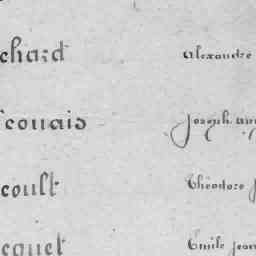 chard Alexandre
couais Joseph
coult Théodore
cquet Emile Jean